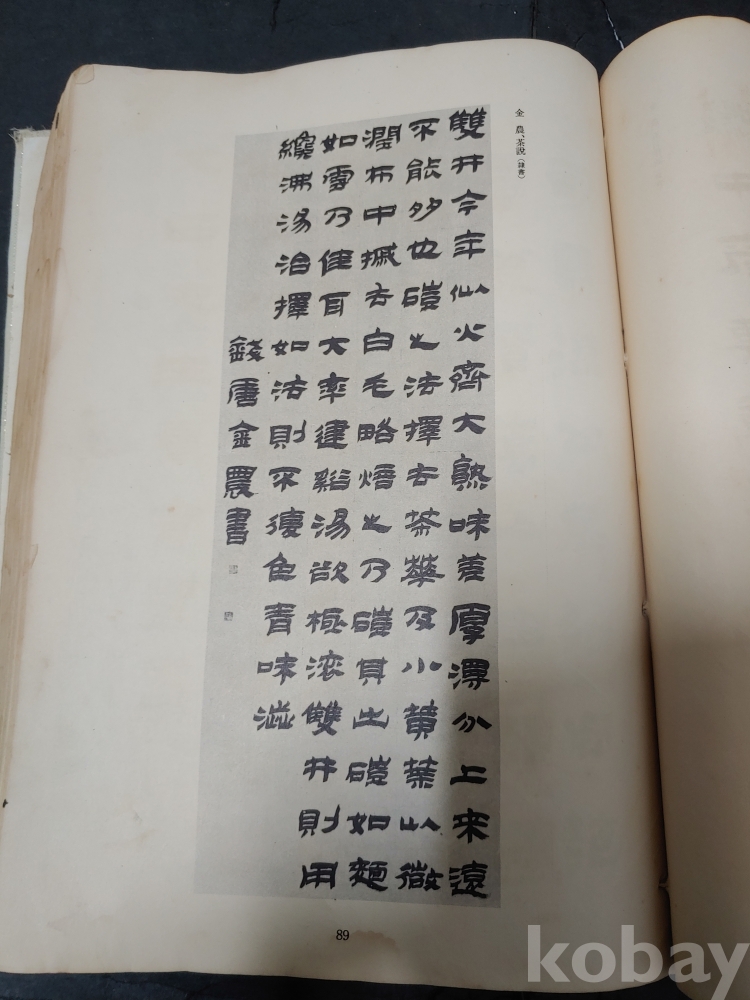 金 農、茶說(隷書)
雙井今年似火齊大熟味差厚澤分上来遠
不能多也磑之法擇去茶華及小黄葉以微
潤布中搣去白毛略焙之乃磑其出磑如麵
如雪乃佳耳大率建谿湯欲極滚雙井則用
纔沸湯治擇如法則不復色青味澁
錢唐金農書
89
kobay